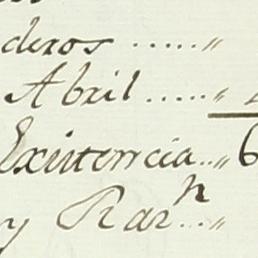 deros ......"
Abril ......"
Existencia..."6
y Rarⁿ..."